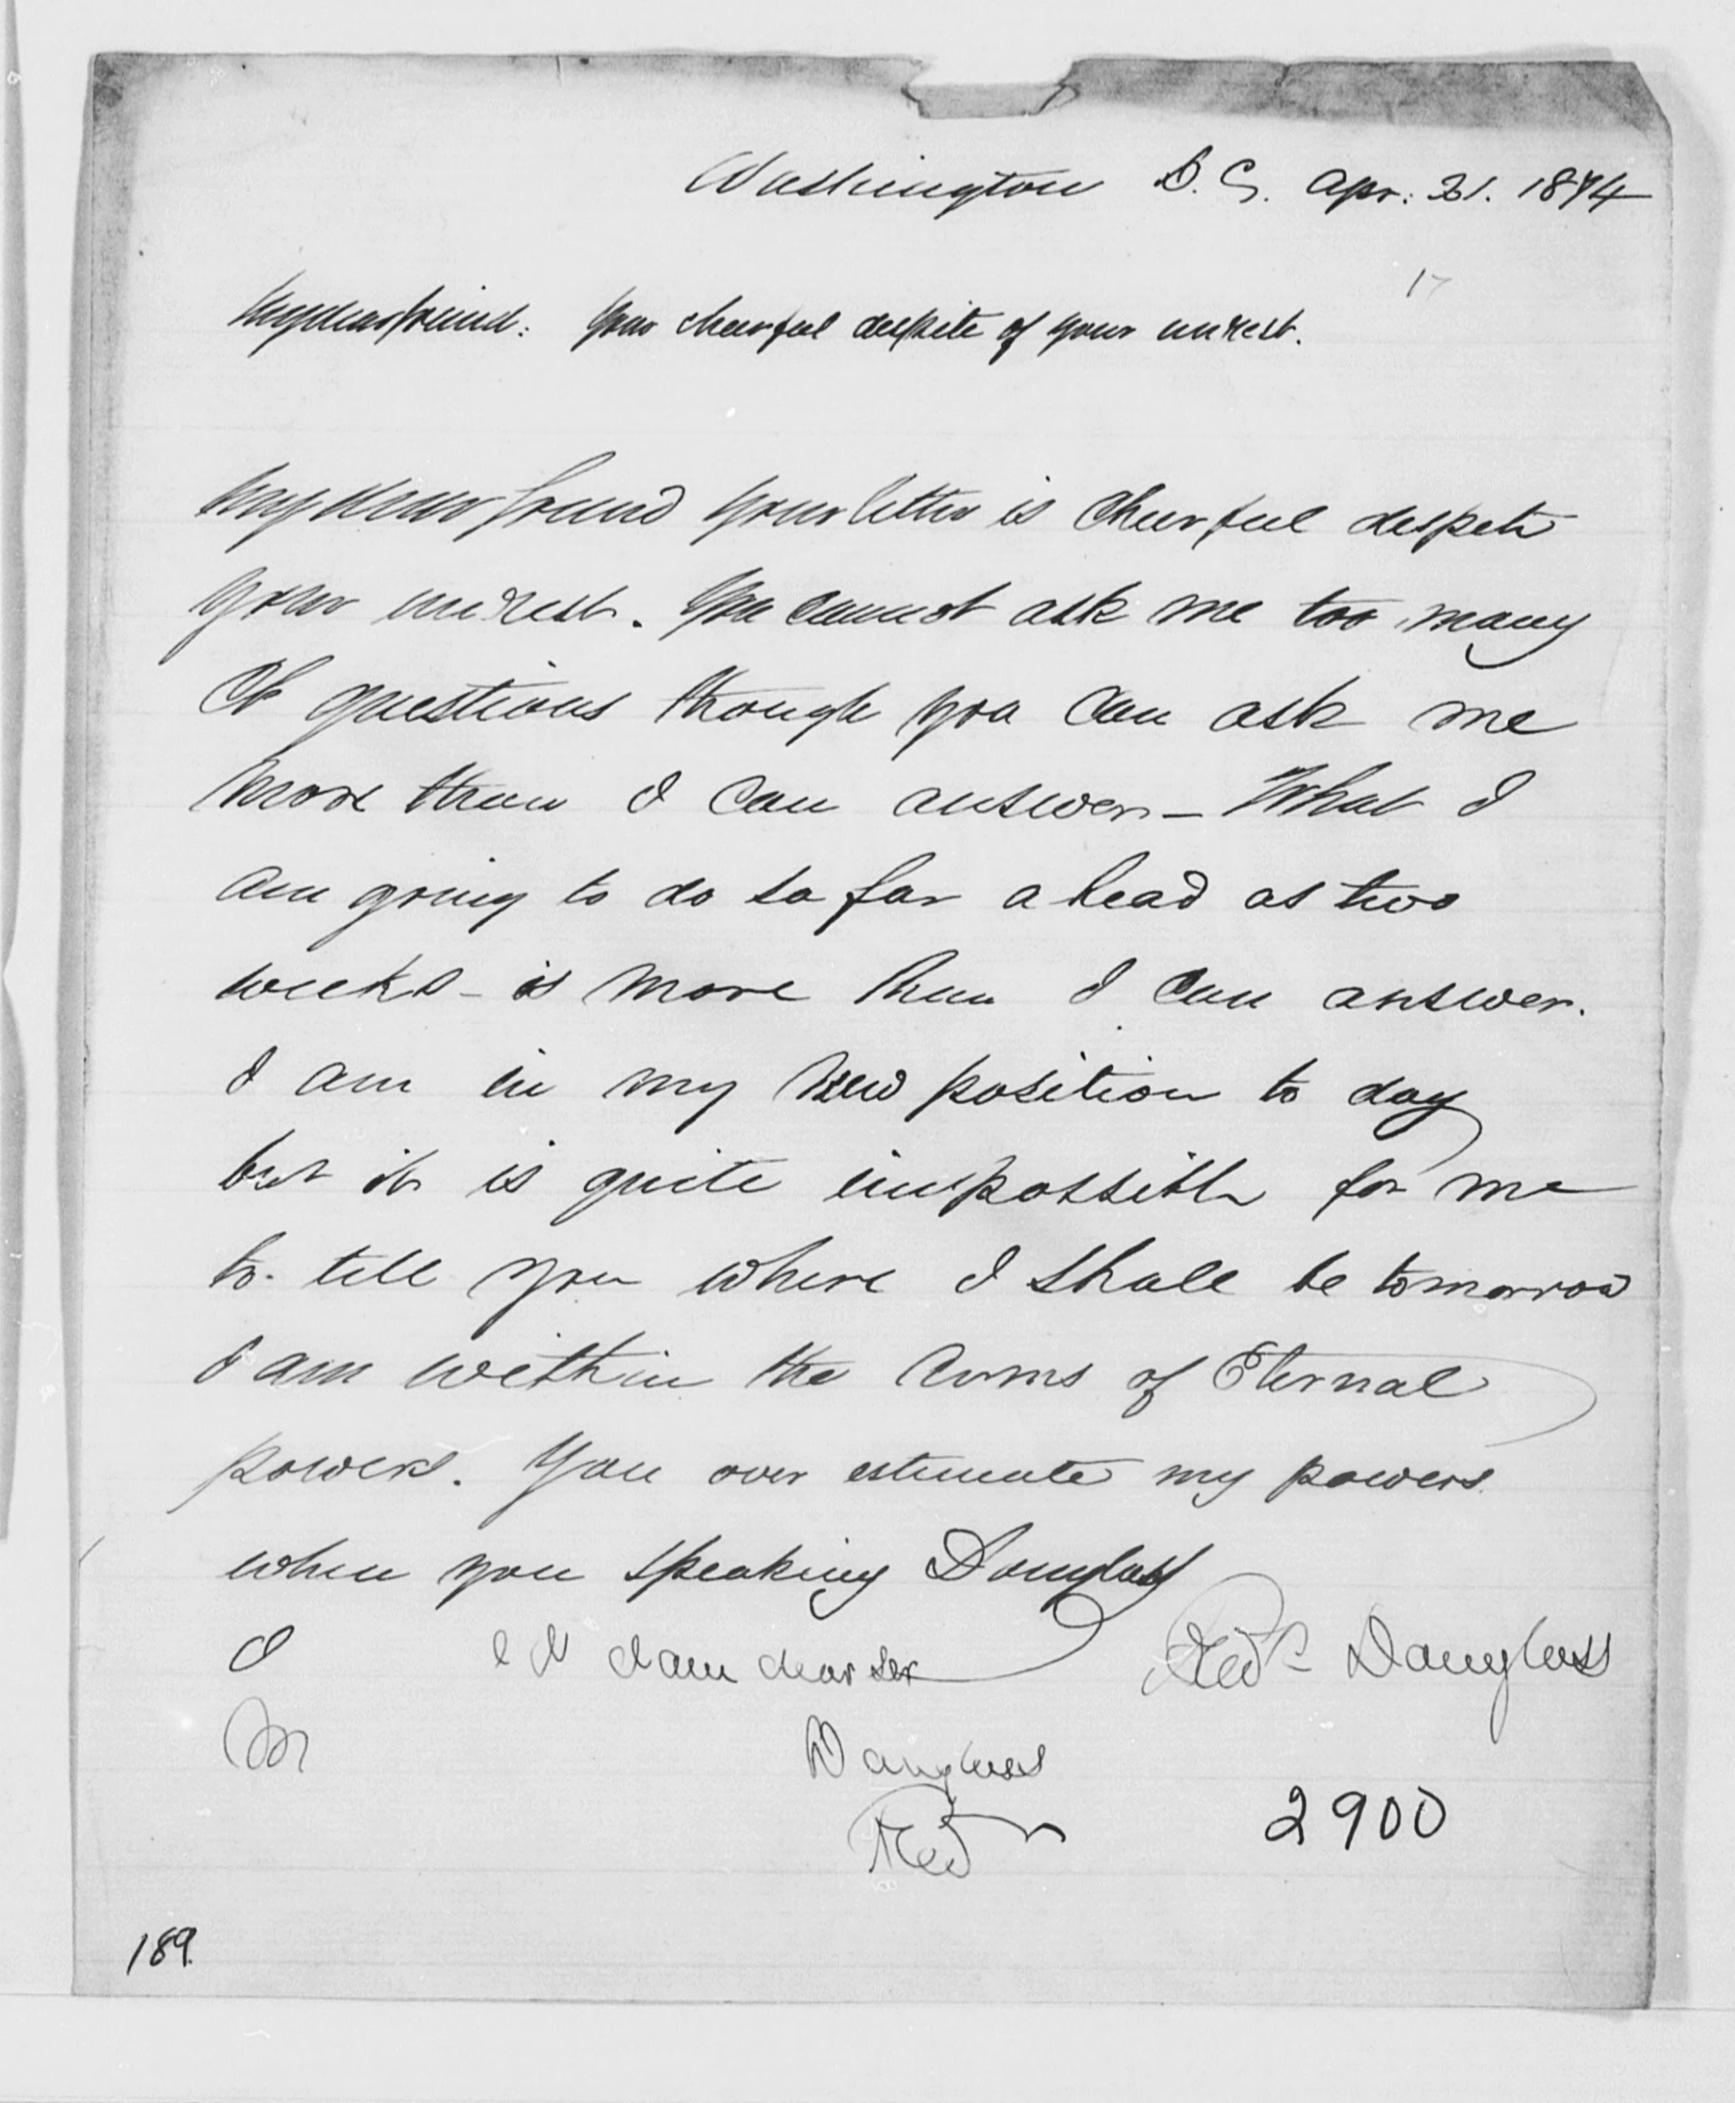 Washington D.C. Apr. 21. 1874
17
My dear friend: Your cheerful despite of your unrest.
My dear friend Your letter is cheerful despite
your unrest. You cannot ask me too many
of questions though you can ask me
more than I can answer – What I
am going to do so far a head as two
weeks – is more than I can answer.
I am in my new position to day
but it is quite impossible for me
to tell you where I shall be tomorrow
I am within the arms of Eternal
powers. You over estimate my powers
when you speaking Douglass
I I am dear Sir Fredk Douglass
M Douglass
Fred
2900
189.